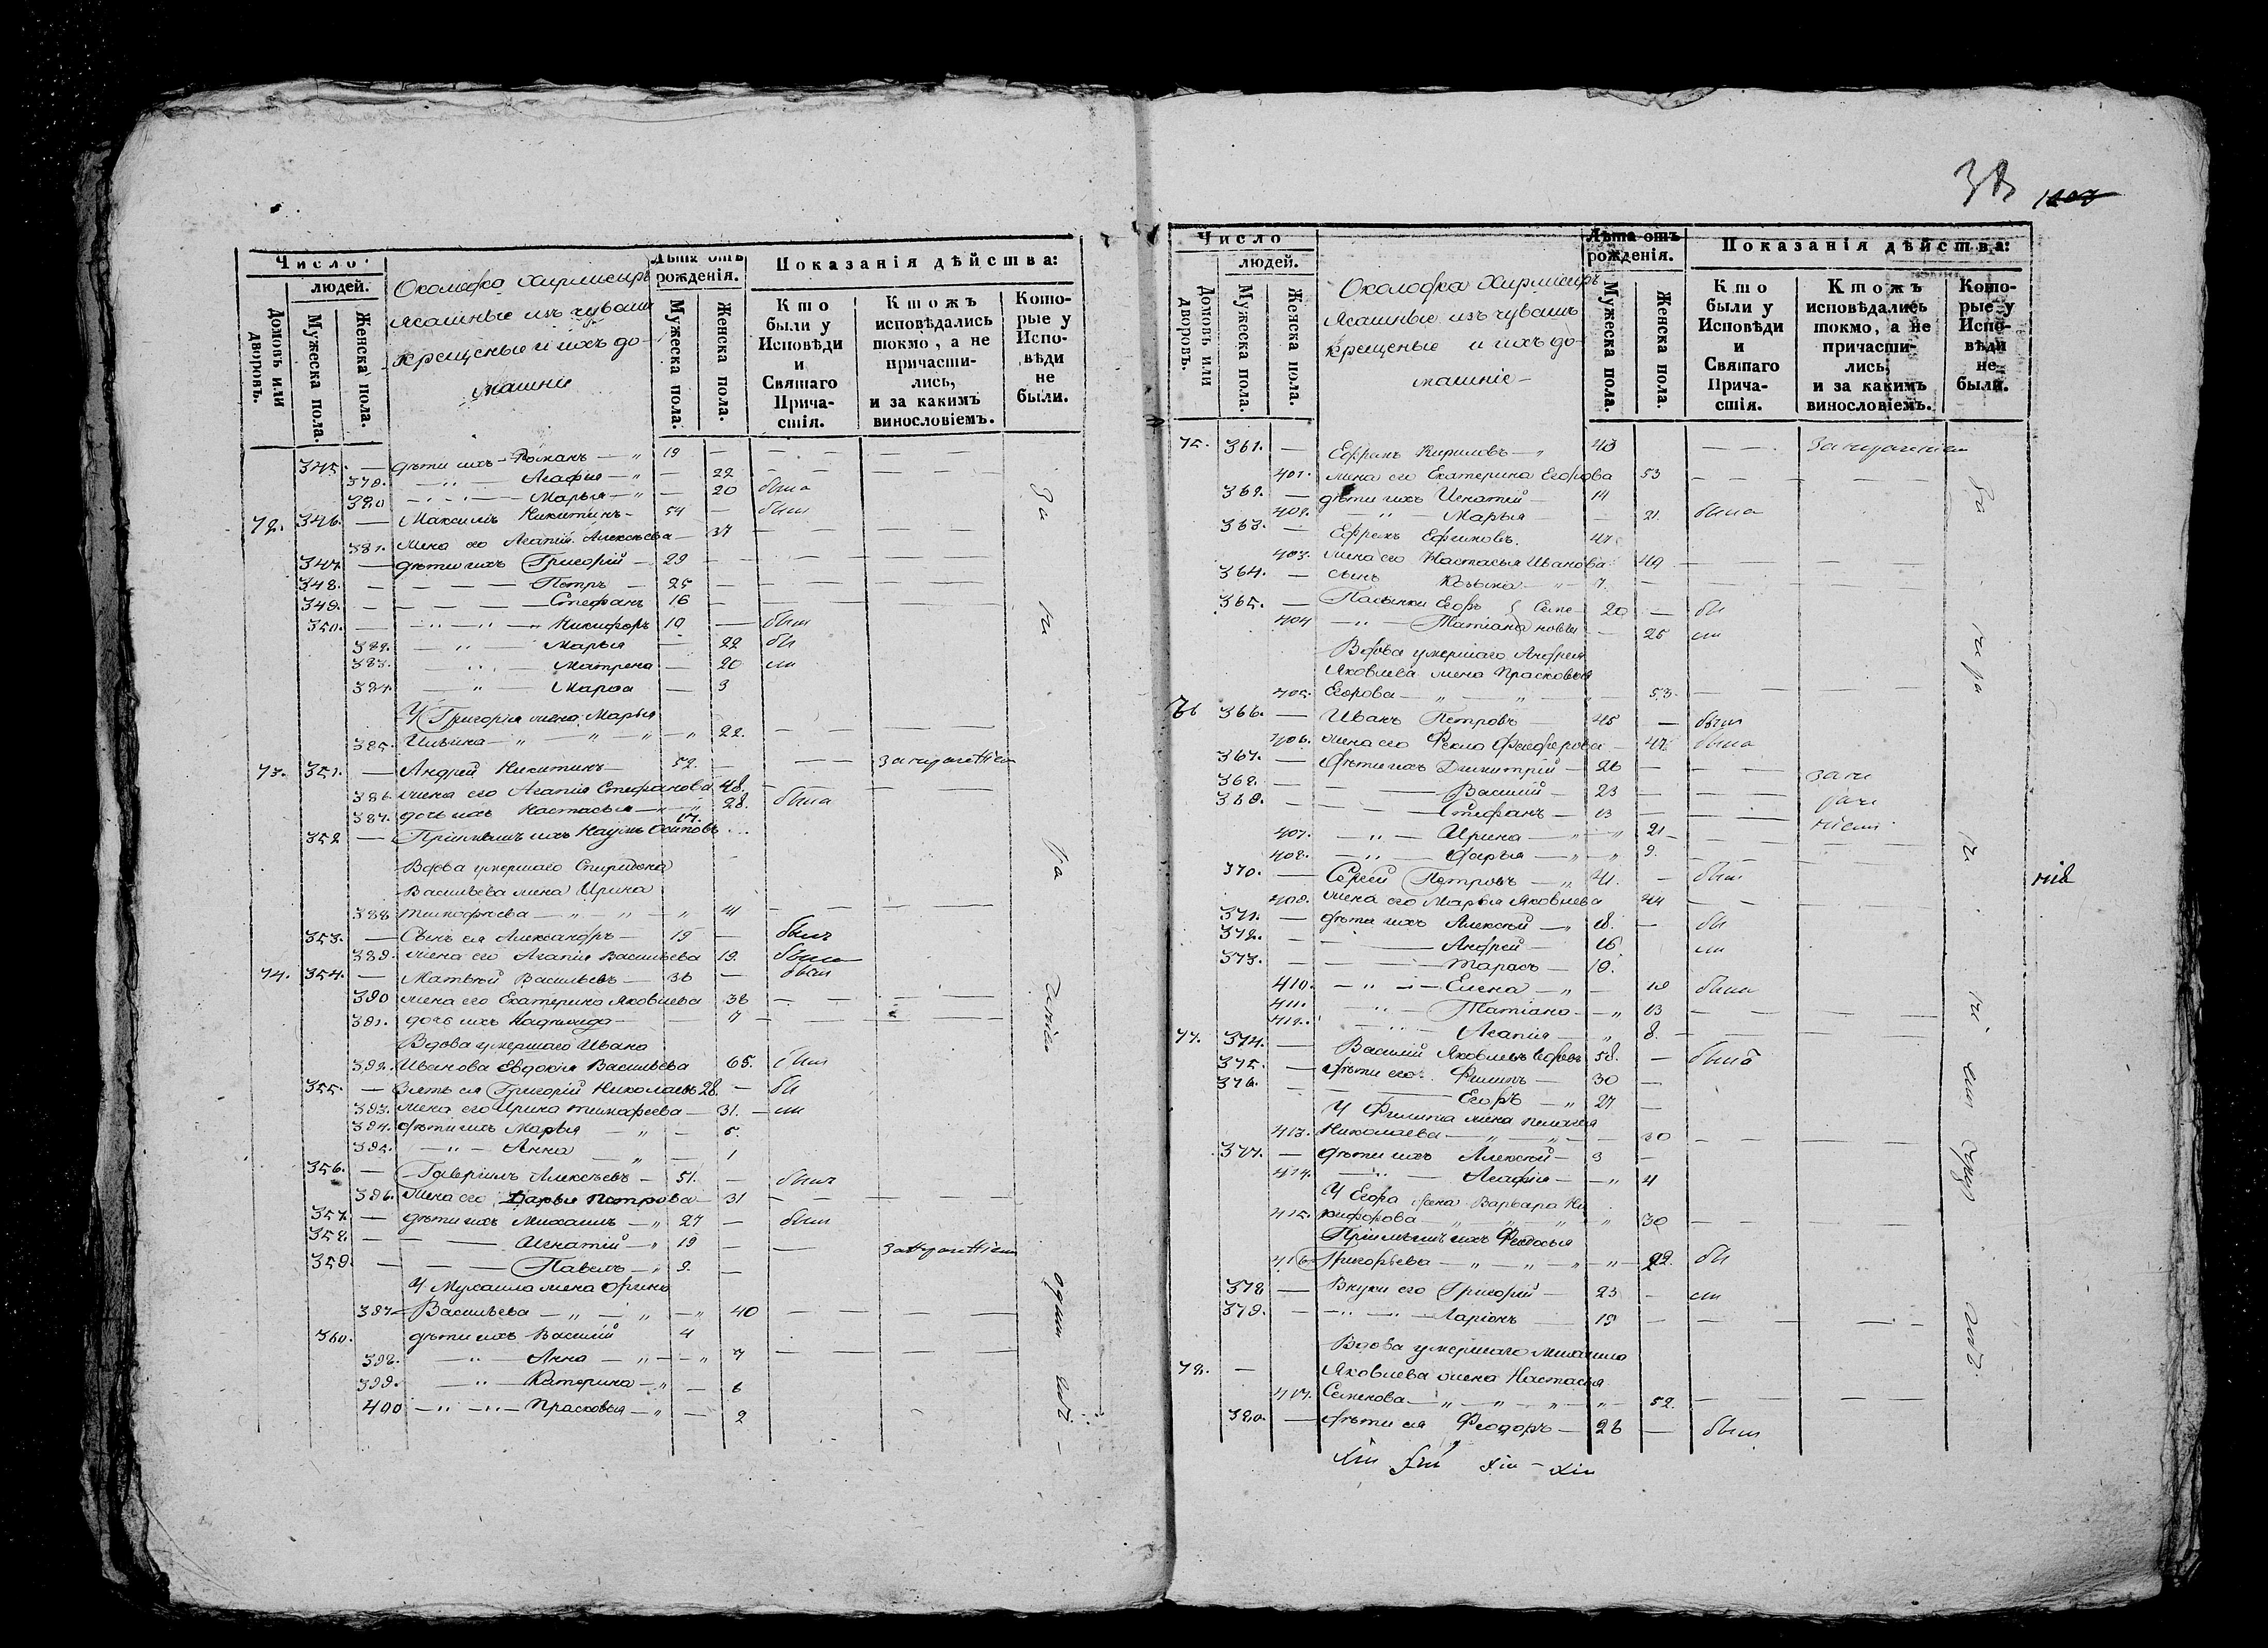 Число
людей.
Домовъ или дворовъ.
Мужеска пола.
Женска пола.
Околодка Хирлисиръ
Ясашные изъ чувашъ
крещеные и ихъ до-
машніе
Лѣта отъ рожденія.
Мужеска пола.
Женска пола.
Показанія дѣйства:
Кто были у Исповѣди и Святаго Причастія.
Ктожъ исповѣдались токмо, а не причастились, и за какимъ винословіемъ.
Которые у Исповѣди не были.
345. — дѣти ихъ — Романъ — 19 —
379. — Агафья — 22
380 — Марья — 20 была
72. 346. — Максимъ Никитинъ — 54 — былъ
381. жена его Агапія Алексѣева — 37
347. — дѣти ихъ Григорій — 29 —
348. — Петръ — 25 —
349. — Стефанъ 16 —
350. — Никифоръ 10 — былъ
382. — Марья — 22 бы
383. — Матрена — 20 ли
384. — Марѳа — 3
У Григорія жена Марья
385. Ильина — 22.
73. 351. — Андрей Никитинъ — 52. — за нераченіем
386 жена его Агапія Стефанова 48.
387. дочь ихъ Настасья — 28. была
352 — Пріимышъ ихъ Наумъ Осиповъ 17.
Вдова умершаго Спиридона
Васильева жена Ирина
388 Тимофеева — 41
353. — Сынъ ея Александръ — 19 — былъ
389. жена его Агапія Васильева 19. была
74. 354. — Матвей Васильевъ — 36 — былъ
390 жена его Екатерина Яковлева 36
391. дочь ихъ Надежда — 7
Вдова умершаго Ивана
392. Иванова Евдокія Васильева 65. была
355. — Зять ея Григорій Николаевъ 28. — бы
393. жена его Ирина Тимофеева — 31. — ли
394. дѣти ихъ Марья — 5.
395. — Анна — 1
356. — Гавріилъ Алексѣевъ — 51. — былъ
396. жена его Дарья Петрова — 31
357. — дѣти ихъ Михаилъ — 27 — былъ
358. — Игнатій — 19 — за нераченіем
359. — Павелъ — 9. —
У Михаила жена Орина
397 — Васильева — 40
360. дѣти ихъ Василій 4
398. — Анна — 7
399. — Катерина — 6
400 — Прасковья — 2
За не ра ченіе одинъ годъ —
38 1207
Число
людей.
Домовъ или дворовъ.
Мужеска пола.
Женска пола.
Околодка Хирлисиръ
Ясашные изъ чувашъ
крещеные и ихъ до-
машніе —
Лѣта отъ рожденія.
Мужеска пола.
Женска пола.
Показанія дѣйства:
Кто были у Исповѣди и Святаго Причастія.
Ктожъ исповѣдались токмо, а не причастились, и за какимъ винословіемъ.
Которые у Исповѣди не были.
75. 361. — Ефримъ Кириловъ — 43 — за нераченіем
401. жена его Екатерина Егорова 53
362. — дѣти ихъ Игнатій — 14
402. — Марья — 21. была
363. — Ефремъ Ефимовъ. 47.
403. жена его Настасья Иванова 49
364. — сынъ Козьма — 7.
365. — Пасынки Егоръ Семе — 20 — бы
404 — Татіана новы — 25 ли
Вдова умершаго Андрея
Яковлева жена Прасковья
405. Егорова — 53.
76 366. — Иванъ Петровъ — 45 — былъ
406. жена его Фекла Феодорова — 47. была
367. — дѣти ихъ Димитрій — 26 — за не
368. — Василій — 23 — раче
369. — Стефанъ — 13 — ніем
407. — Ирина — 21 —
408. — Дарья — 9.
370. — Сергей Петровъ — 41. — былъ
409. жена его Марья Яковлева 44
371. — дѣти ихъ Алексѣй — 18. — бы
372. — Андрей — 16 ли
373. — Тарасъ — 10.
410. — Елена — 19 была
411. — Татіана — 13
412. — Агапія — 8.
77. 374. — Василій Яковлевъ вдовъ 58. — былъ
375. — дѣти его Филипъ — 30 —
376. — Егоръ — 27 —
У Филипа жена Пелагея
413. Николаева — 30
377. — дѣти ихъ Алексѣй — 3 —
414. — Агафія — 4
У Егора жена Варвара Ни
415. кифорова — 30
Пріимышъ ихъ Федосья
416 Григорьева — 22. бы
378 — Внуки его Григорій — 23 — ли
379. — Ларіонъ — 19
Вдова умершаго Михаила
78. — Яковлева жена Настасья
417. Семенова — 52.
380. — дѣти ея Феодоръ — 26 — былъ
За не ра че ніе одинъ годъ.